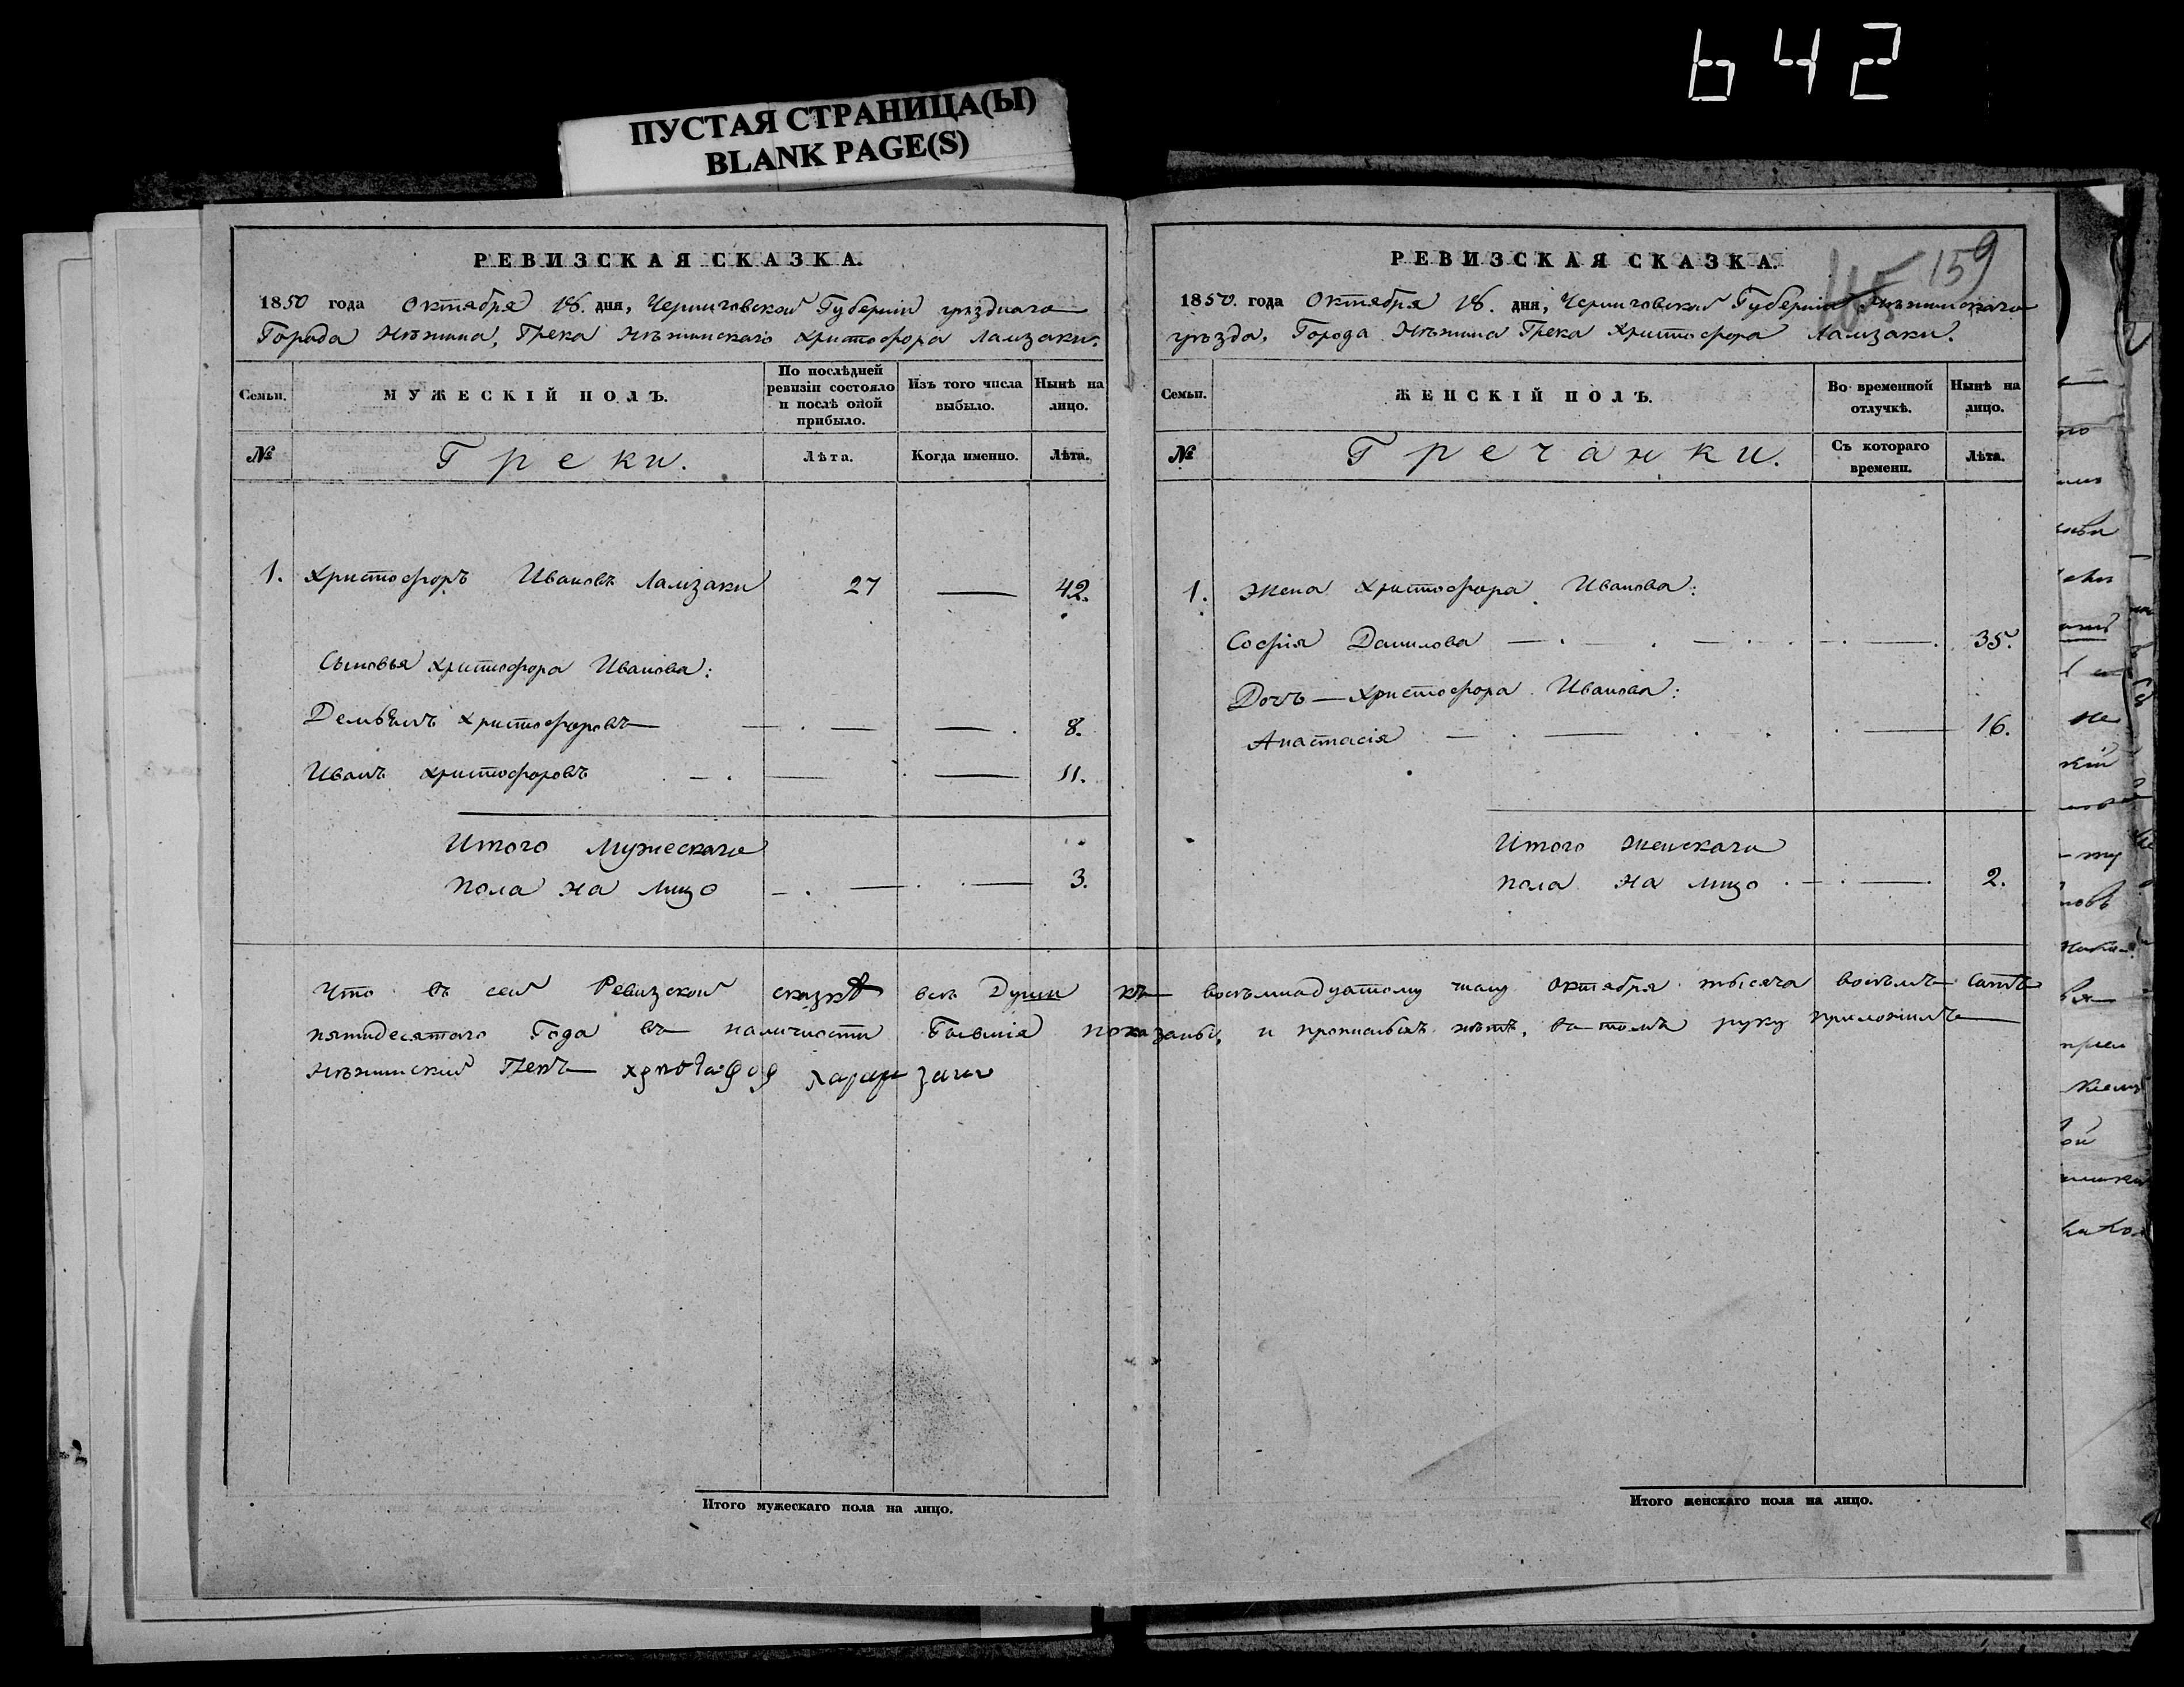 642
ПУСТАЯ СТРАНИЦА(Ы)
BLANK PAGE(S)
РЕВИЗСКАЯ СКАЗКА.
1850 года Октября 18. дня, Черниговской Губернiи уѣзднаго
Города Нѣжина, Грека Нѣжинскаго Христофора Ламзаки.
Семьи.
МУЖЕСКIЙ ПОЛЪ.
По послѣдней ревизiи состояло и послѣ оной прибыло.
Изъ того числа выбыло.
Нынѣ на лицо.
№
Греки.
Лѣта.
Когда именно.
Лѣта.
1. Христофоръ Ивановъ Ламзаки 27 — 42.
Сыновья Христофора Иванова:
Христофоровъ — — — 8.
Иванъ Христофоровъ — — — 11.
Итого Мужескаго
пола на лицо — — — 3.
Что въ сей Ревизской сказкѣ всѣ Души къ восемнадцатому числу Октября тысяча восемъ сотъ
пятидесятого Года въ наличности Бывшiя показаны, и прописныхъ нѣтъ, въ томъ руку приложилъ
Нѣжинский Грекъ
Итого мужескаго пола на лицо.
РЕВИЗСКАЯ СКАЗКА.
159
1850. года Октября 18. дня, Черниговской Губернiи Нѣжинскаго
уѣзда, Города Нѣжина Грека Христофора Ламзаки.
Семьи.
ЖЕНСКIЙ ПОЛЪ.
Во временной отлучкѣ.
Нынѣ на лицо.
№
Гречанки.
Съ котораго времени.
Лѣта.
1. Жена Христофора Иванова:
София Данилова — — — 35.
Дочь — Христофора Иванова:
Анастасiя — — — 16.
Итого Женскаго
пола на лицо — — 2.
Итого женскаго пола на лицо.